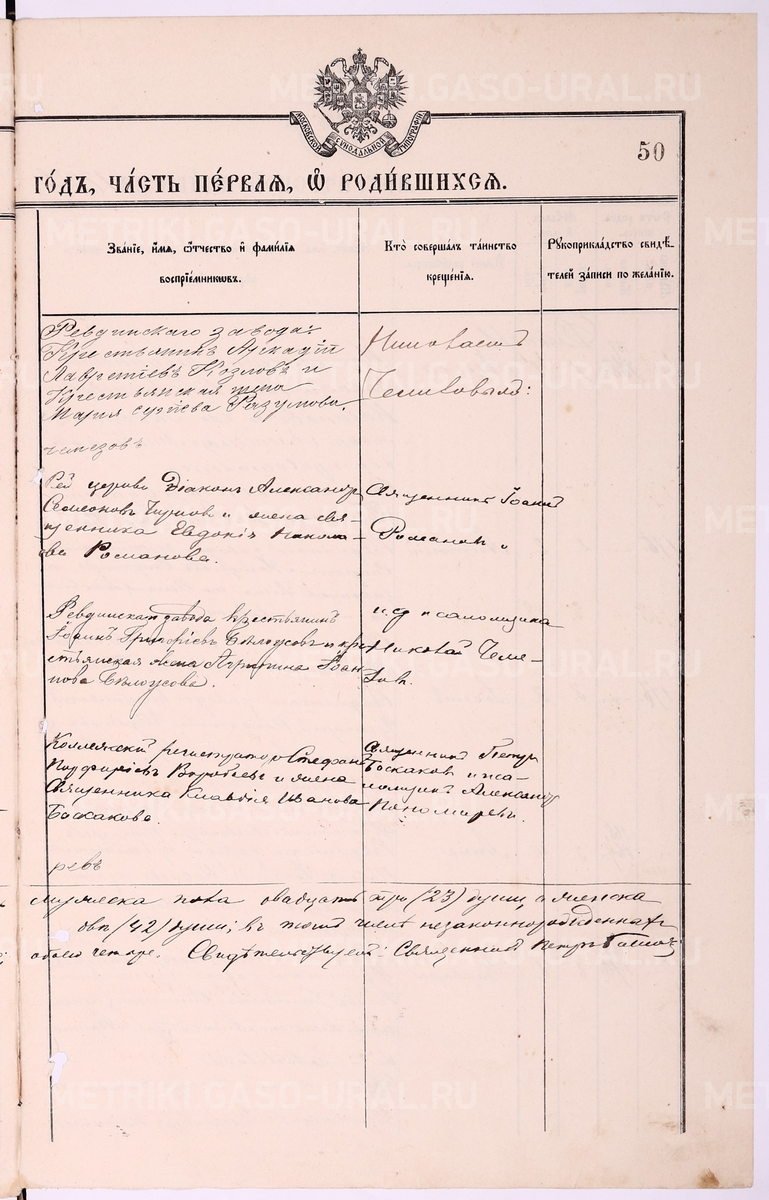 METRIKI GASO-URAL.RU
МОСКОВСКОЙ СѴНОДАЛЬНОЙ ТИПОГРАФІИ
50
ГО́ДЪ, ЧА́СТЬ ПЕ́РВАѦ, Ѽ РОДИ́ВШИХСѦ.
Зва́ніе, и́мѧ, ѻ҆́тчество и҆ фами́лїѧ
воспрїе́мникѡвъ.
Кто̀ соверша́лъ та́инство
креще́нїѧ.
Рꙋкоприкла́дство свидѣ́-
телей за́писи по жела́нїю.
Ревдинскаго завода:
Крестьянинъ Аркадій
Лаврентіевъ Козловъ и
Крестьянская жена
Марія Разумова.
Николаемъ
Сей церкви Діаконъ Александръ
Симеоновъ и жена свя-
щенника Евдокія Никола-
ева Романова.
Священникъ Іоаннъ
Романовъ
Ревдинскаго завода крестьянинъ
Іоаннъ Григоріевъ Бѣлоусовъ и кре-
стьянская жена Агрипина Іоан-
нова Бѣлоусова.
и.д. псаломщика
Николай
Коллежскій регистраторъ Стефанъ
Порфиріевъ Воробьевъ и жена
Священника Клавдія Иванова
Баскакова.
Священникъ Петръ
Баскаковъ и пса-
ломщикъ Александръ
Пономаревъ.
ревъ
мужеска пола двадцать три (23) души а женска
двѣ (42) души; въ томъ числѣ незаконнорожденныхъ
обоего четыре. Свидѣтельствуетъ: Священникъ Петръ